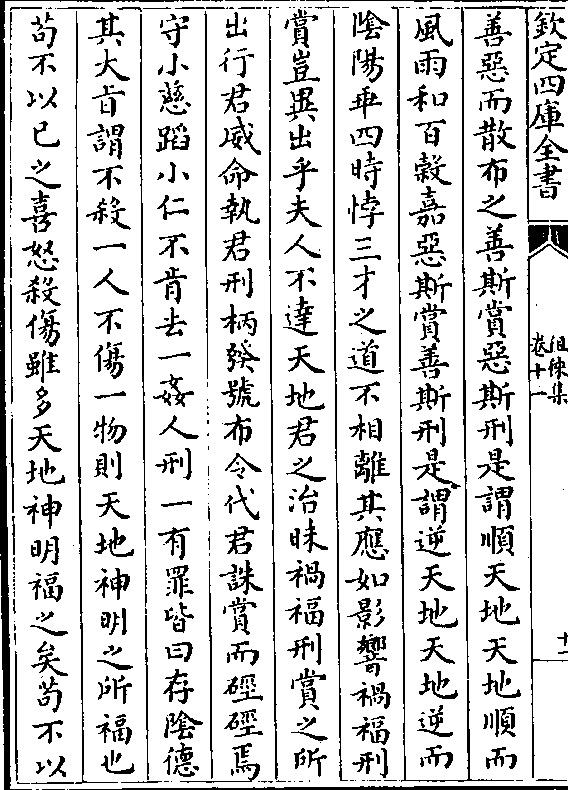 欽定四庫全書
徂徠集
卷十一
十一
善惡而散布之善斯賞惡斯刑是謂順天地天地順而
風雨和百穀嘉惡斯賞善斯刑是謂逆天地天地逆而
陰陽乖四時悖三才之道不相離其應如影響禍福刑
賞豈異出乎夫人不達天地君之治昧禍福刑賞之所
出行君威命執君刑柄發號布令代君誅賞而硜硜焉
守小慈蹈小仁不肯去一姦人刑一有罪皆曰存陰德
其大㫖謂不殺一人不傷一物則天地神明之所福也
苟不以已之喜怒殺傷雖多天地神明福之矣苟不以